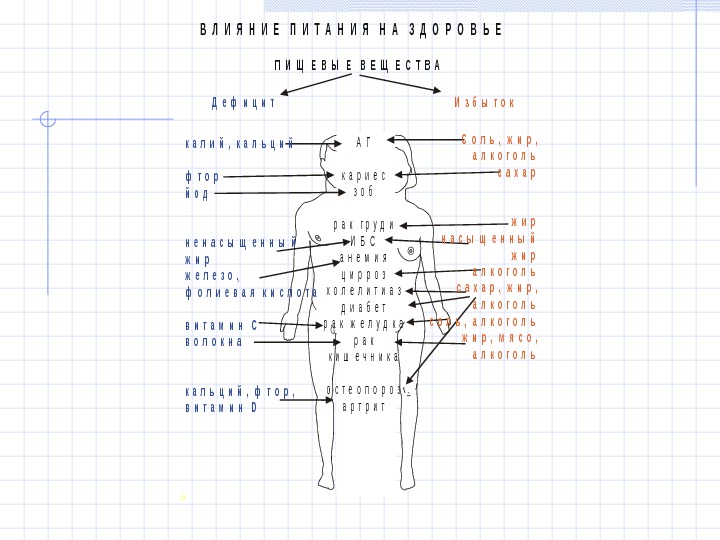 ВЛИЯНИЕ ПИТАНИЯ НА ЗДОРОВЬЕ
ПИЩЕВЫЕ ВЕЩЕСТВА
Дефицит
Избыток
калий, кальций
АГ
Соль, жир,
алкоголь
фтор
кариес
сахар
йод
зоб
рак груди
жир
ненасыщенный
ИБС
насыщенный
жир
анемия
жир
железо,
цирроз
алкоголь
фолиевая кислота
холелитиаз
сахар, жир,
диабет
алкоголь
витамин С
рак желудка
соль, алкоголь
волокна
рак
жир, мясо,
кишечника
алкоголь
кальций, фтор,
остеопороз,
витамин D
артрит